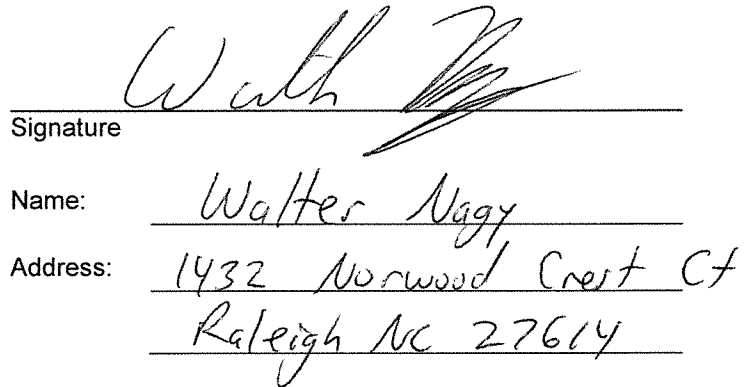 Signature
Name: Walter Nagy
Address: 1432 Norwood Crest Ct
Raleigh NC 27614